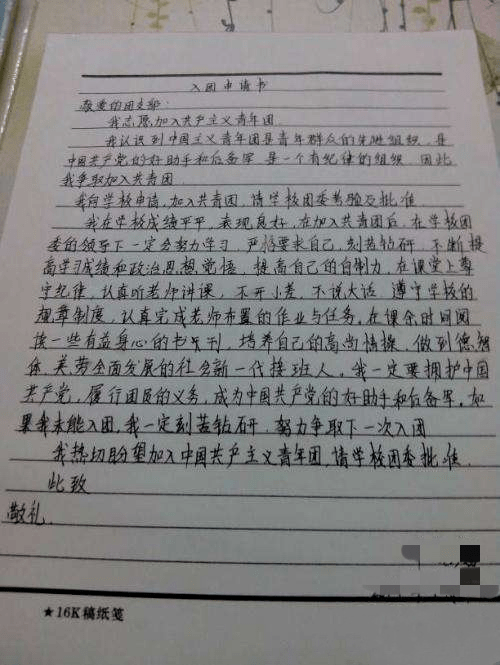 入团申请书
敬爱的团支部:
我志愿加入共产主义青年团.
我认识到中国主义青年团是青年群众的先进组织，是
中国共产党的好助手和后备军，是一个有纪律的组织，因此
我争取加入共青团.
我向学校申请，加入共青团，请学校团委考验及批准.
我在学校成绩平平，表现良好，在加入共青团后，在学校团
委的领导下一定会努力学习，严格要求自己，刻苦钻研，不断提
高学习成绩和政治思想觉悟，提高自己的自制力，在课堂上尊
守纪律，认真听老师讲课，不开小差，不说大话，遵守学校的
规章制度，认真完成老师布置的作业与任务，在课余时间阅
读一些有益身心的书与刊，培养自己的高尚情操，做到德智
体、美劳全面发展的社会新一代接班人，我一定要拥护中国
共产党，履行团员的义务，成为中国共产党的好助手和后备军，如
果我未能入团，我一定刻苦钻研，努力争取下一次入团
我热切盼望加入中国共产主义青年团，请学校团委批准.
此致
敬礼.
★16K稿纸笺